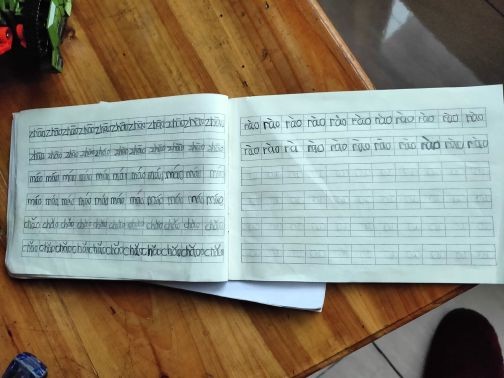 zhāo zhāo zhāo zhāo zhāo zhāo zhāo zhāo zhāo zhāo
zhāo zhāo zhāo zhāo zhāo zhāo zhāo zhāo zhāo zhāo
máo máo máo máo máo máo máo máo máo máo
máo máo máo máo máo máo máo máo máo máo
chǎo chǎo chǎo chǎo chǎo chǎo chǎo chǎo chǎo chǎo
chǎo chǎo chǎo chǎo chǎo chǎo chǎo chǎo chǎo chǎo
rào rào rào rào rào rào rào rào rào rào rào
rào rào rào rào rào rào rào rào rào rào rào